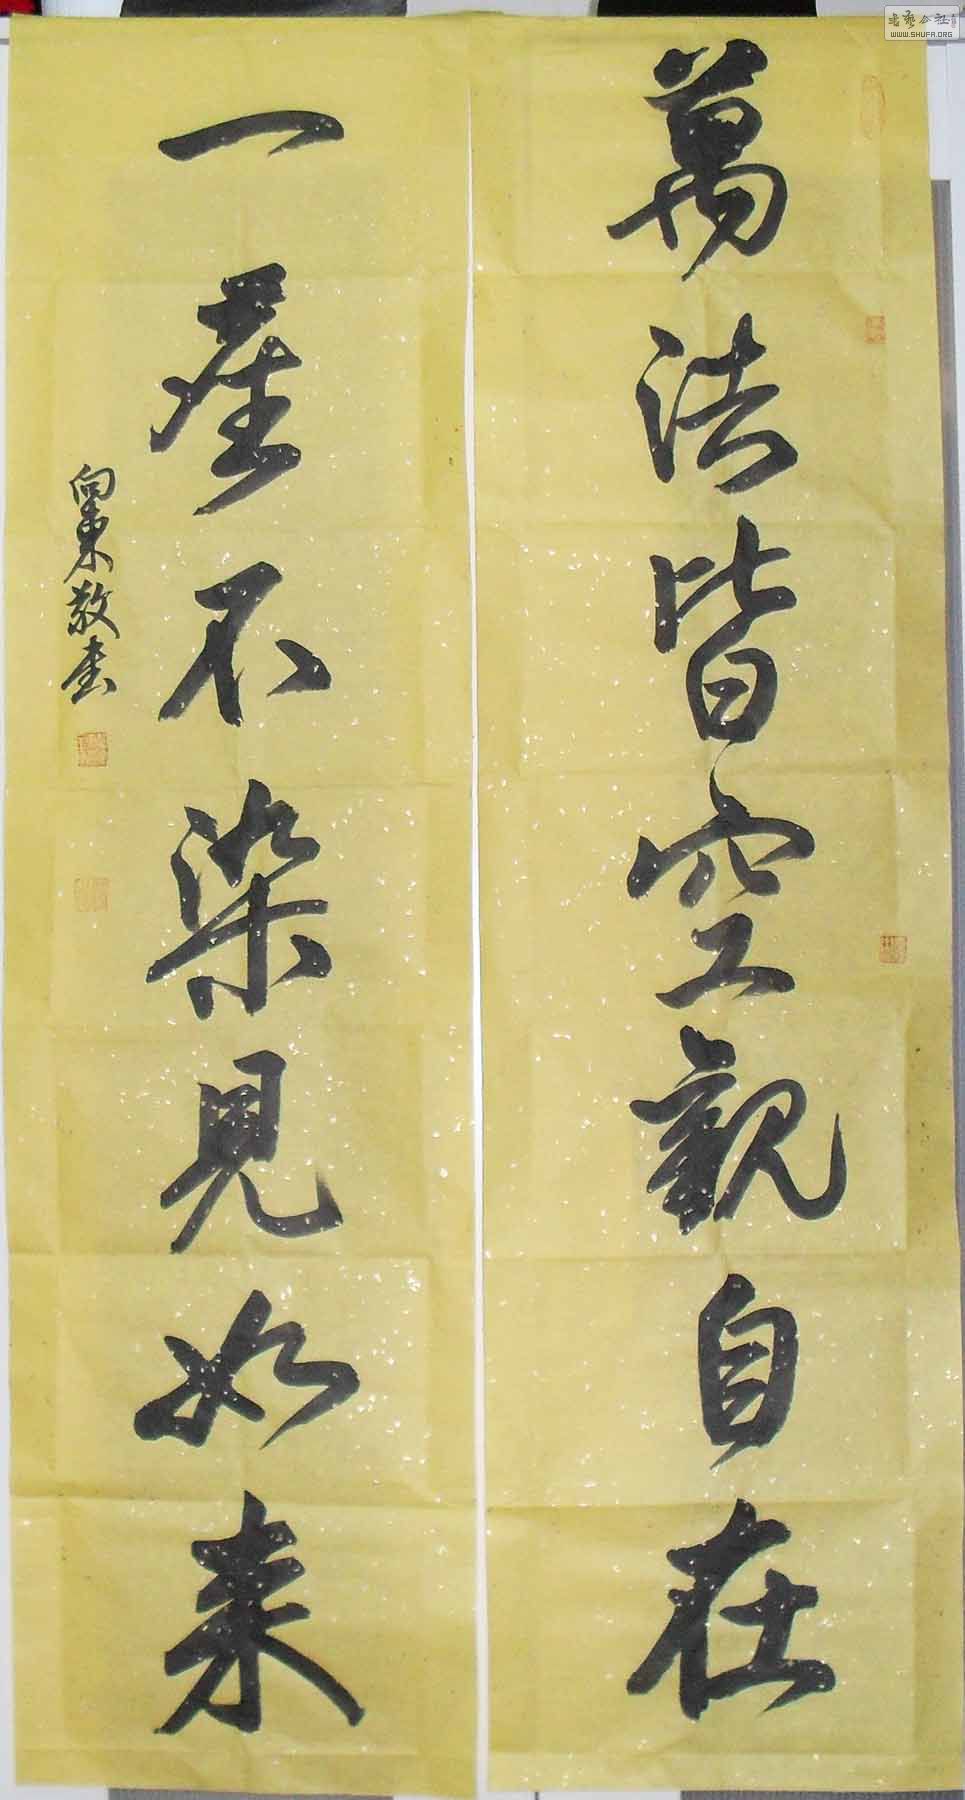 萬法皆空觀自在
一塵不染見如来
向東敬書
书艺公社
WWW.SHUFA.ORG